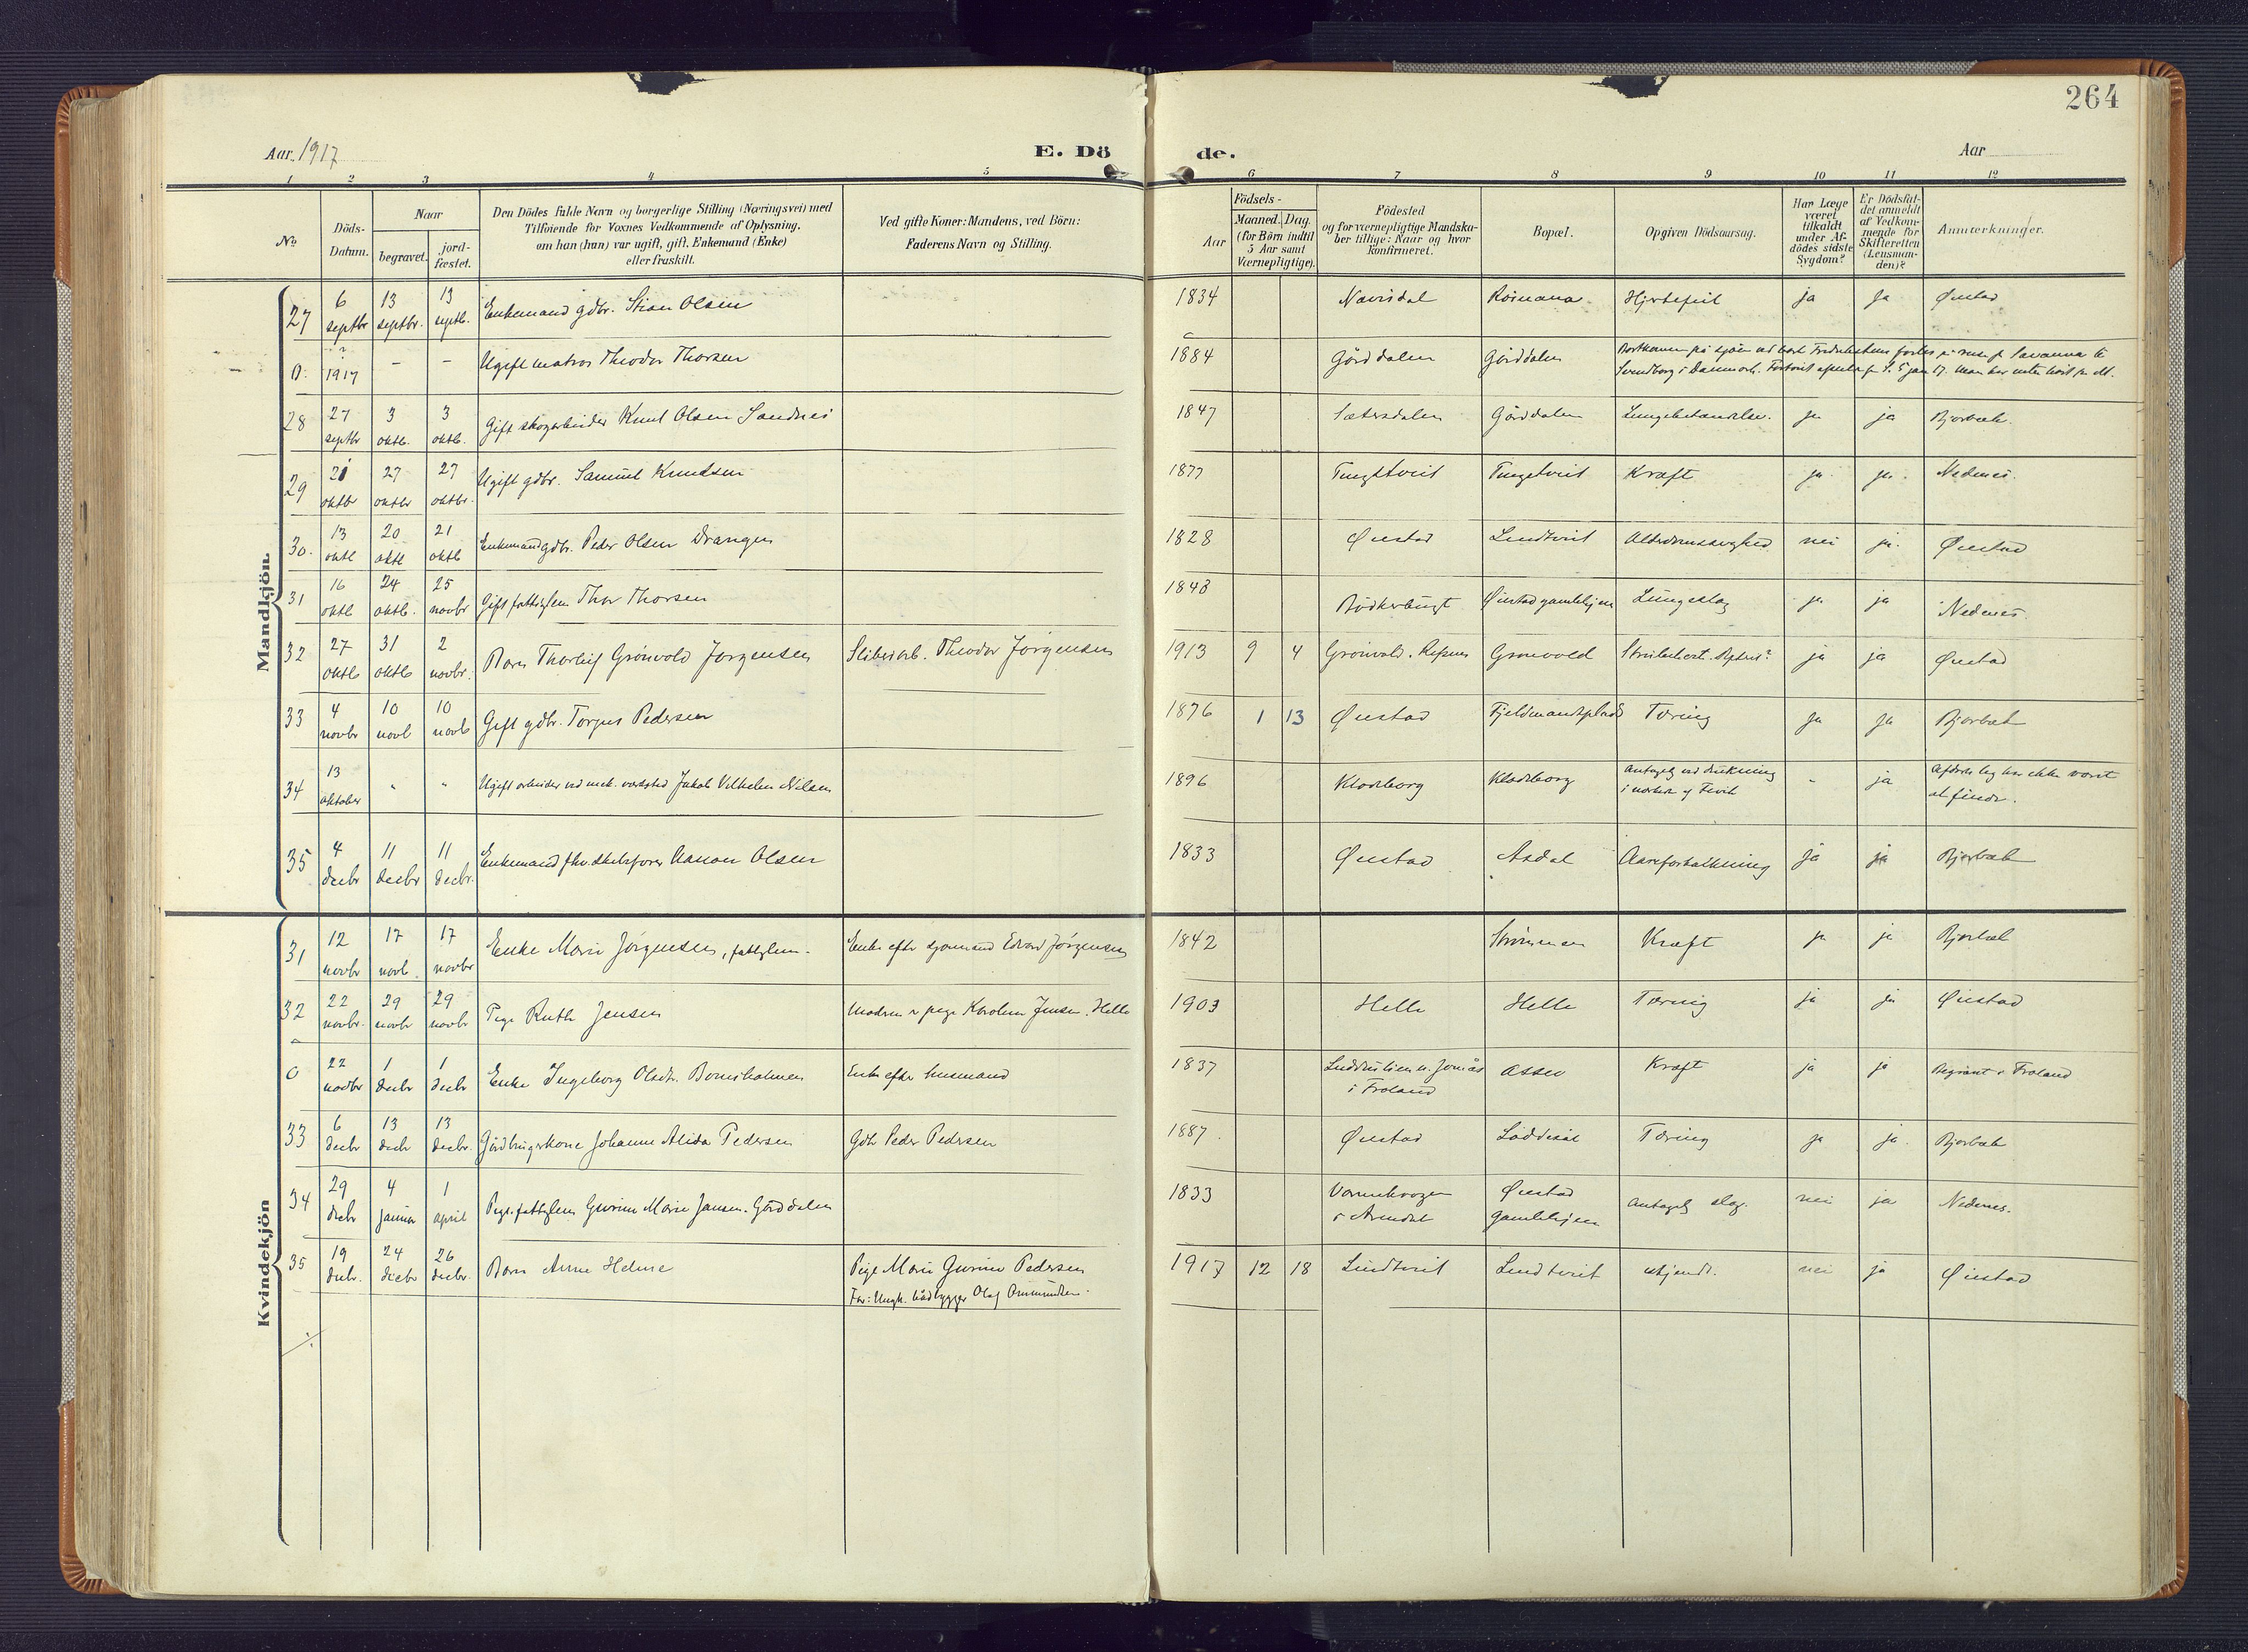 264
Aar 1917
E. Dö
de.
Aar
1 2 3 4 5 6 7 8 9 10 11 12
No
Döds-Datum.
Naar
begravet.
jord-fæstet.
Den Dödes fulde Navn og borgerlige Stilling (Næringsvei) med
Tilföiende for Voxnes Vedkommende af Oplysning,
om han (hun) var ugift, gift, Enkemand (Enke)
eller fraskilt.
Ved gifte Koner: Mandens, ved Börn:
Faderens Navn og Stilling.
Födsels-
Aar
Maaned. Dag.
(for Börn indtil
5 Aar samt
Værnepligtige).
Födested
og for værnepligtige Mandska-
ber tillige: Naar og hvor
konfirmeret.
Bopæl.
Opgiven Dödsaarsag.
Har Læge
været
tilkaldt
under Af-
dödes sidste
Sygdom?
Er Dödsfal-
det anmeldt
af Vedkom-
mende for
Skifteretten
(Lensman-
den)?
Anmærkninger.
Mandkjön.
27 6 septbr 13 septbr. 13 septb. Enkemand gdbr. Stian Olsen 1834 Navisdal Hjertefeil ja ja Øiestad
0. ? 1917 – – Ugift matros Theodor Thorsen 1884 Gårddalen Gårddalen
28 27 septbr 3 oktb. 3 oktb. Gift skogarbeider Knut Olsen Sandnes 1847 Sætersdalen Gårddalen Lungebetændelse. ja ja Bjorbæk.
29 21 oktbr 27 oktbr 27 oktbr. Ugift gdbr. Samuel Knudsen 1877 Tingstveit Tingstveit Kræft ja ja. Nedenes.
30. 13 oktb 20 oktb 21 oktb Enkemand gdbr. Peder Olsen Drangen 1828 Øiestad Lindtveit Alderdomssvaghed nei ja. Øiestad
31 16 oktb 24 oktb. 25 novbr Gift fattiglem Thor Thorsen 1848 Bödkerbugt Øiestad gamlehjem ja ja Nedenes.
32 27 oktb 31 oktb 2 novbr. Barn Thorleif Grönvold Jorgensen Sliberiarb. Theodor Jörgensen 1913 9 4 Grönvold. Grönvold ja ja Øiestad
33 4 novbr 10 novb 10 novb Gift gdbr. Torjus Pedersen 1876 1 13 Øiestad Fjeldmandsplads Tæring ja ja Bjorbæk
34 13 oktober " " Ugift arbeider ved mek. værksted Jakob Vilhelm Nilsen 1896 Klodeborg Klodeborg Antagelig ved drukning - ja Afdødes lig har ikke været at finde.
35 4 decbr 11 decbr 11 decbr. Enkemand fhv. skibsfører Aanon Olsen 1833 Øiestad Asdal Aareforkalkning ja ja Bjorbæk
Kvindekjön
31 12 novbr 17 novb. 17 novbr Enke Marie Jörgensen, fattiglem. Enke efter sjømand Edvard Jörgensen 1842 Strömmen Kræft ja ja Bjorbæk
32 22 novbr. 29 novbr 29 novbr Pige Ruth Jensen Moderen er pige Karoline Jensen. Helle 1903 Helle Helle Tæring ja ja Øiestad
0 22 novbr 1 decbr 1 decbr Enke Ingeborg Olsdtr. Bomsholmen Enke efter husmand 1837 i Froland Assev Kræft ja ja Begravet i Froland
33 6 decbr 13 decbr 13 decbr. Gårdbrugerkone Johanne Alida Pedersen Gdbr Peder Pedersen 1887. Øiestad Löddesöl Tæring ja ja. Bjorbæk
34 29 decbr 4 januar 1 april Pige. fattiglem Gurine Marie Jansen. Gårddalen 1833 Arendal Øiestad Gamlehjem Antagelig slag. nei ja Nedenes.
35 19 decbr. 24 decbr 26 decbr. Barn Anne Helene Pige Marie Gurine Pedersen
Far: Ungk. båtbygger Olaf Ommundsen. 1917 12 18 Lindtveit Lindtveit ukjendt. nei ja Øiestad